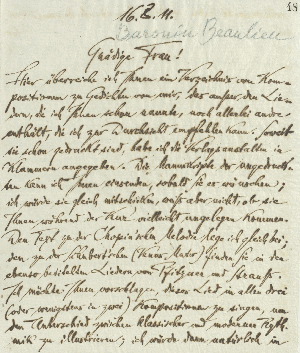 18
16. 2. 11.
Baronin Beaulieu
Gnädige Frau!
Hier überreiche ich Ihnen ein Verzeichnis von Kom-
positionen zu Gedichten von mir, das ausser den Lie-
dern, die ich Ihnen schon nannte, noch allerlei andre
enthält, die ich zur Durchsicht empfehlen kann. Soweit
sie schon gedruckt sind, habe ich die Verlagsanstalten in
Klammern angegeben. Die Manuskripte der ungedruck-
ten kann ich Ihnen einsenden, sobald Sie es wünschen;
ich würde sie gleich mitschicken, weiss aber nicht, ob sie
Ihnen während der Kur vielleicht ungelegen kommen.
Den Text zu der Chopinschen Melodie lege ich gleich bei;
den zu der Schubertschen finden Sie in den
ebenso betitelten Liedern von Pfitzner und Strauss.
Ich möchte Ihnen vorschlagen, dieses Lied in allen drei
(oder wenigstens in zwei) Kompositionen zu singen, um
den Unterschied zwischen klassischer und moderner Ryth-
mik zu illustrieren; ich würde dann natürlich in